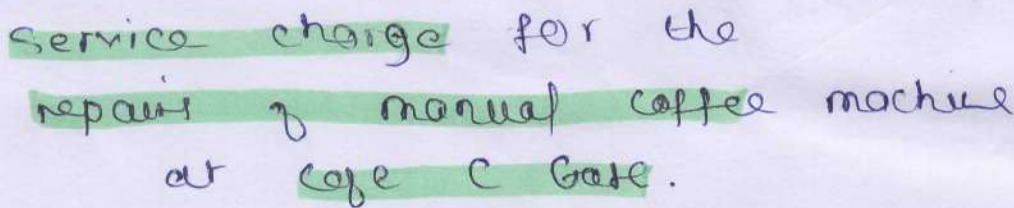 Service charge for the
repairs of manual coffee machine
at cafe C Gate.